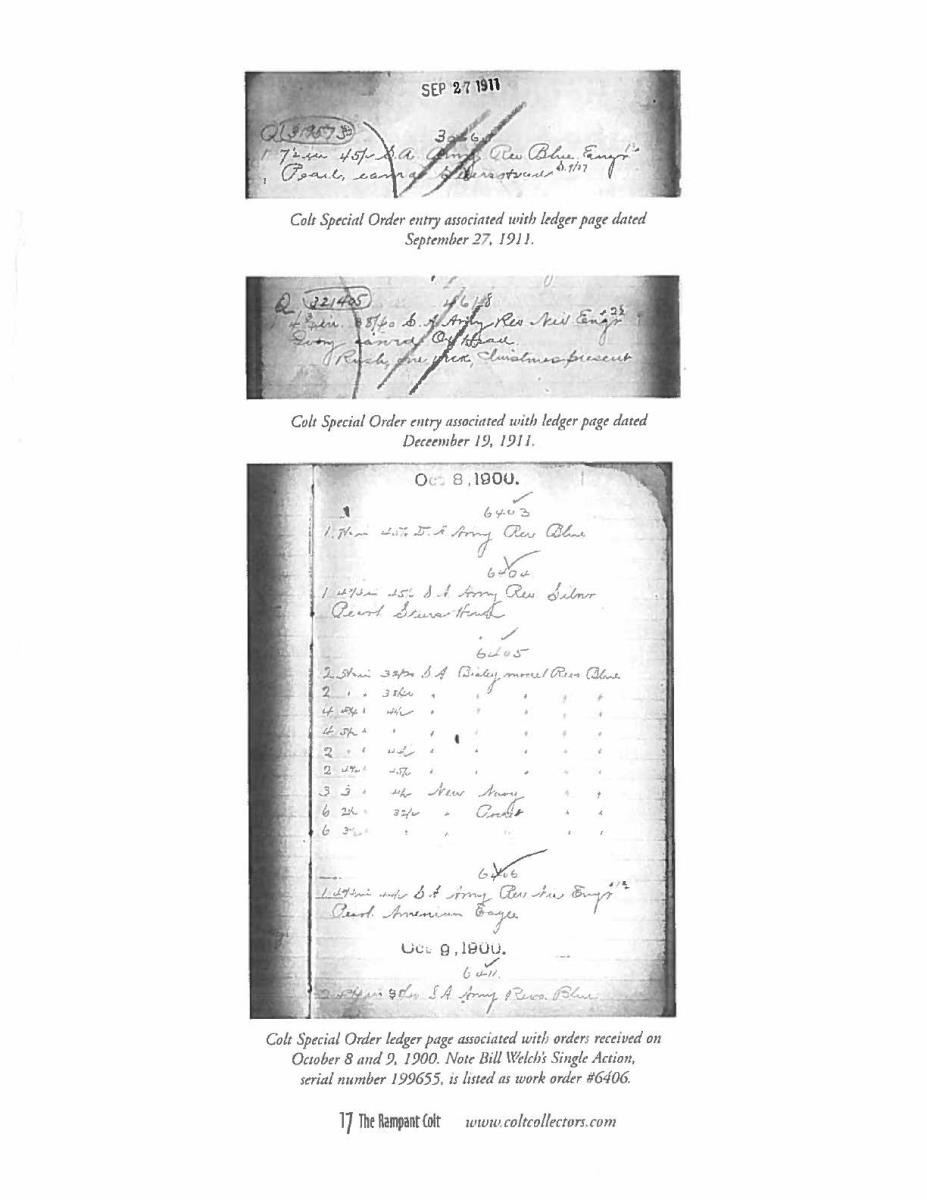 SEP 27 1911
31957
7½ in 45/c S.A. Army Rev Blue Engr
Pearl, carved Steershead
Colt Special Order entry associated with ledger page dated
September 27, 1911.
Q 321405
4618
4¾ in. 38/40 S. A Army Rev Nie Engr
Ivory carved Ox Head
Rush, Christmas present
Colt Special Order entry associated with ledger page dated
Deceember 19, 1911.
Oct 8, 1900.
6403
1 in 45/c D. A Army Rev Blue
6404
1 4¾ in 45/c S A Army Rev Silver
Pearl Steers Head
6405
2 in 32/20 S A Bisley model Revs Blue
2 " " 38/40 " " " " " "
4 " " " " " " "
4 " " " " " " " "
2 " " " " " " " "
2 " 45/c " " " " " "
3 3 " New Navy " "
6 32/c " Pocket " "
6 " " " " "
6406
1 S A Army Rev Nie Engr
Pearl American Eagle
Oct 9, 1900.
6411
S A Army Revs. Blue
Colt Special Order ledger page associated with orders received on
October 8 and 9, 1900. Note Bill Welch's Single Action,
serial number 199655, is listed as work order #6406.
17 The Rampant Colt www.coltcollectors.com